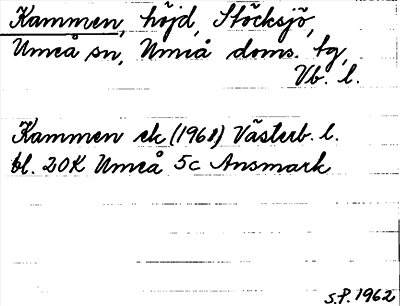 Kammen, höjd, Stöcksjö,
Umeå sn, Umeå doms. tg,
Vb. l.
Kammen ek (1961) Västerb. l.
bl. 20K Umeå 5c Ansmark
S.P. 1962